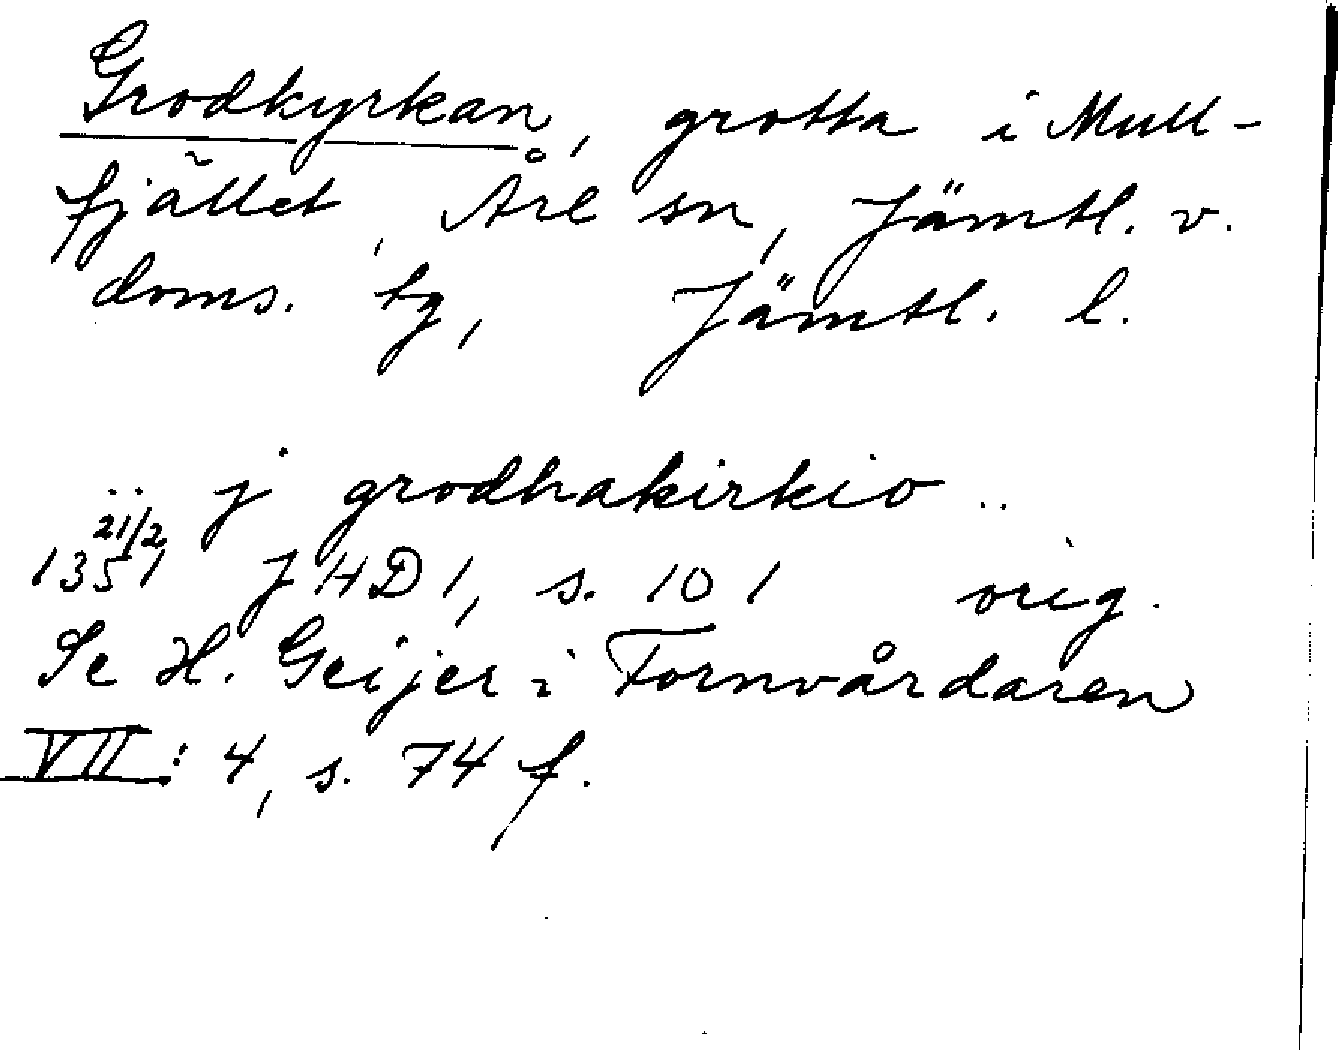 Grodkyrkan, grotta i Mull-
fjället, Åre sn, Jämtl. v.
doms. tg, Jämtl. l.
.. j grodhakirkio ..
21/2 1351 JHD 1, s. 101 orig.
Se H. Geijer i Fornvårdaren
VII: 4, s. 74 f.